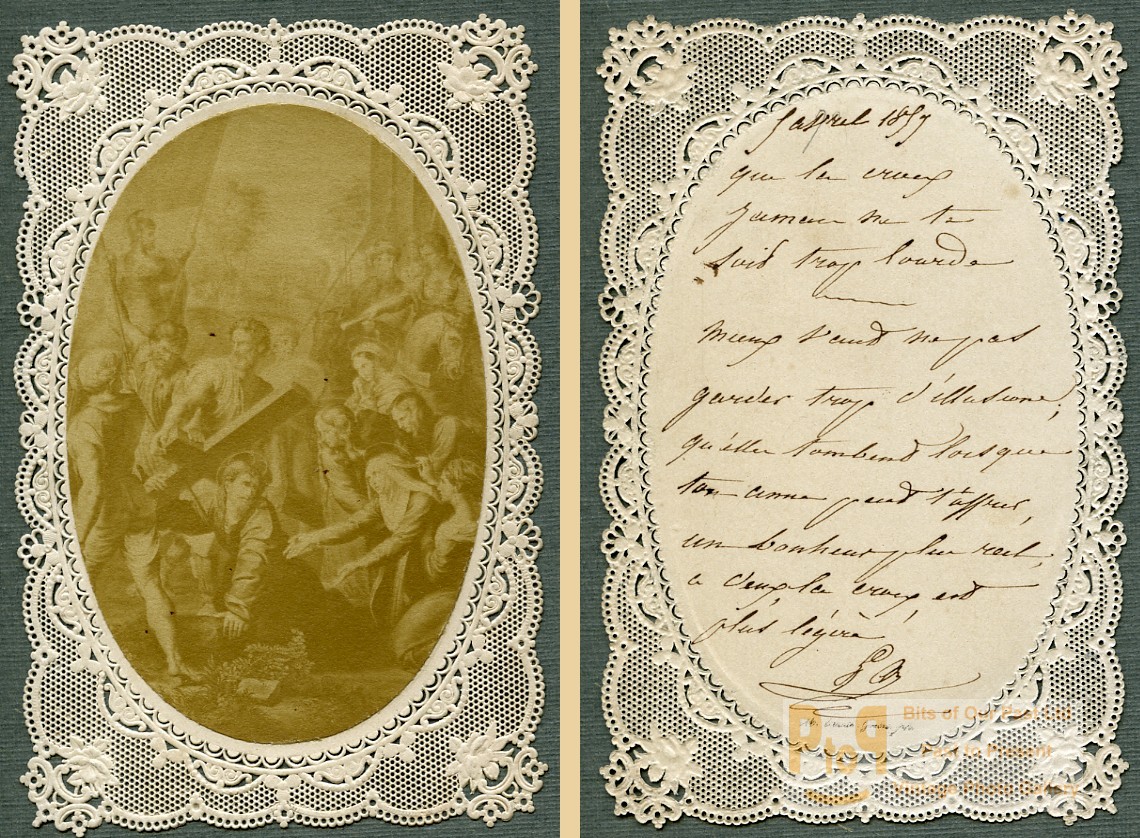 5 avril 1857
que la croix
jamais ne te
soit trop lourde
mieux vaud ne pas
garder trop d'illusions,
qu'elles tombend lorsque
ton amie peud t'offrir,
un bonheur plus reel,
a deux la croix est
plus légère
PtoP
Bits of Our Past Ltd
Past to Present
Vintage Photo Gallery